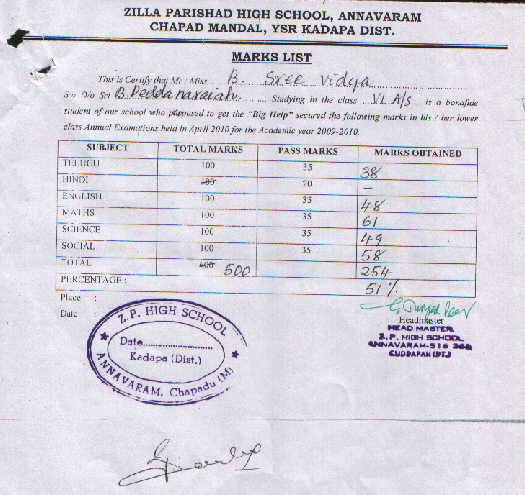 ZILLA PARISHAD HIGH SCHOOL, ANNAVARAM
CHAPAD MANDAL, YSR KADAPA DIST.
MARKS LIST
This is Certify that Mr / Miss B. Sree Vidya
S/o D/o Sri B. Peddanaraiah. Studying in the class VI A/s is a bonafide
student of our school who prepared to get the "Big Help" secured the following marks in his / her lower
class Annual Examations held in April 2010 for the Academic year 2009-2010.
SUBJECT TOTAL MARKS PASS MARKS MARKS OBTAINED
TELUGU 100 35 38
HINDI 100 20 —
ENGLISH 100 35 48
MATHS 100 35 61
SCIENCE 100 35 49
SOCIAL 100 35 58
TOTAL 600 500 254
PERCENTAGE : 51%
Place :
Date
Z.P. HIGH SCHOOL
Date
Kadapa (Dist.)
ANNAVARAM, Chapadu (M)
Headmaster
HEAD MASTER
Z.P. HIGH SCHOOL
ANNAVARAM-516
CUDDAPAH (DT.)